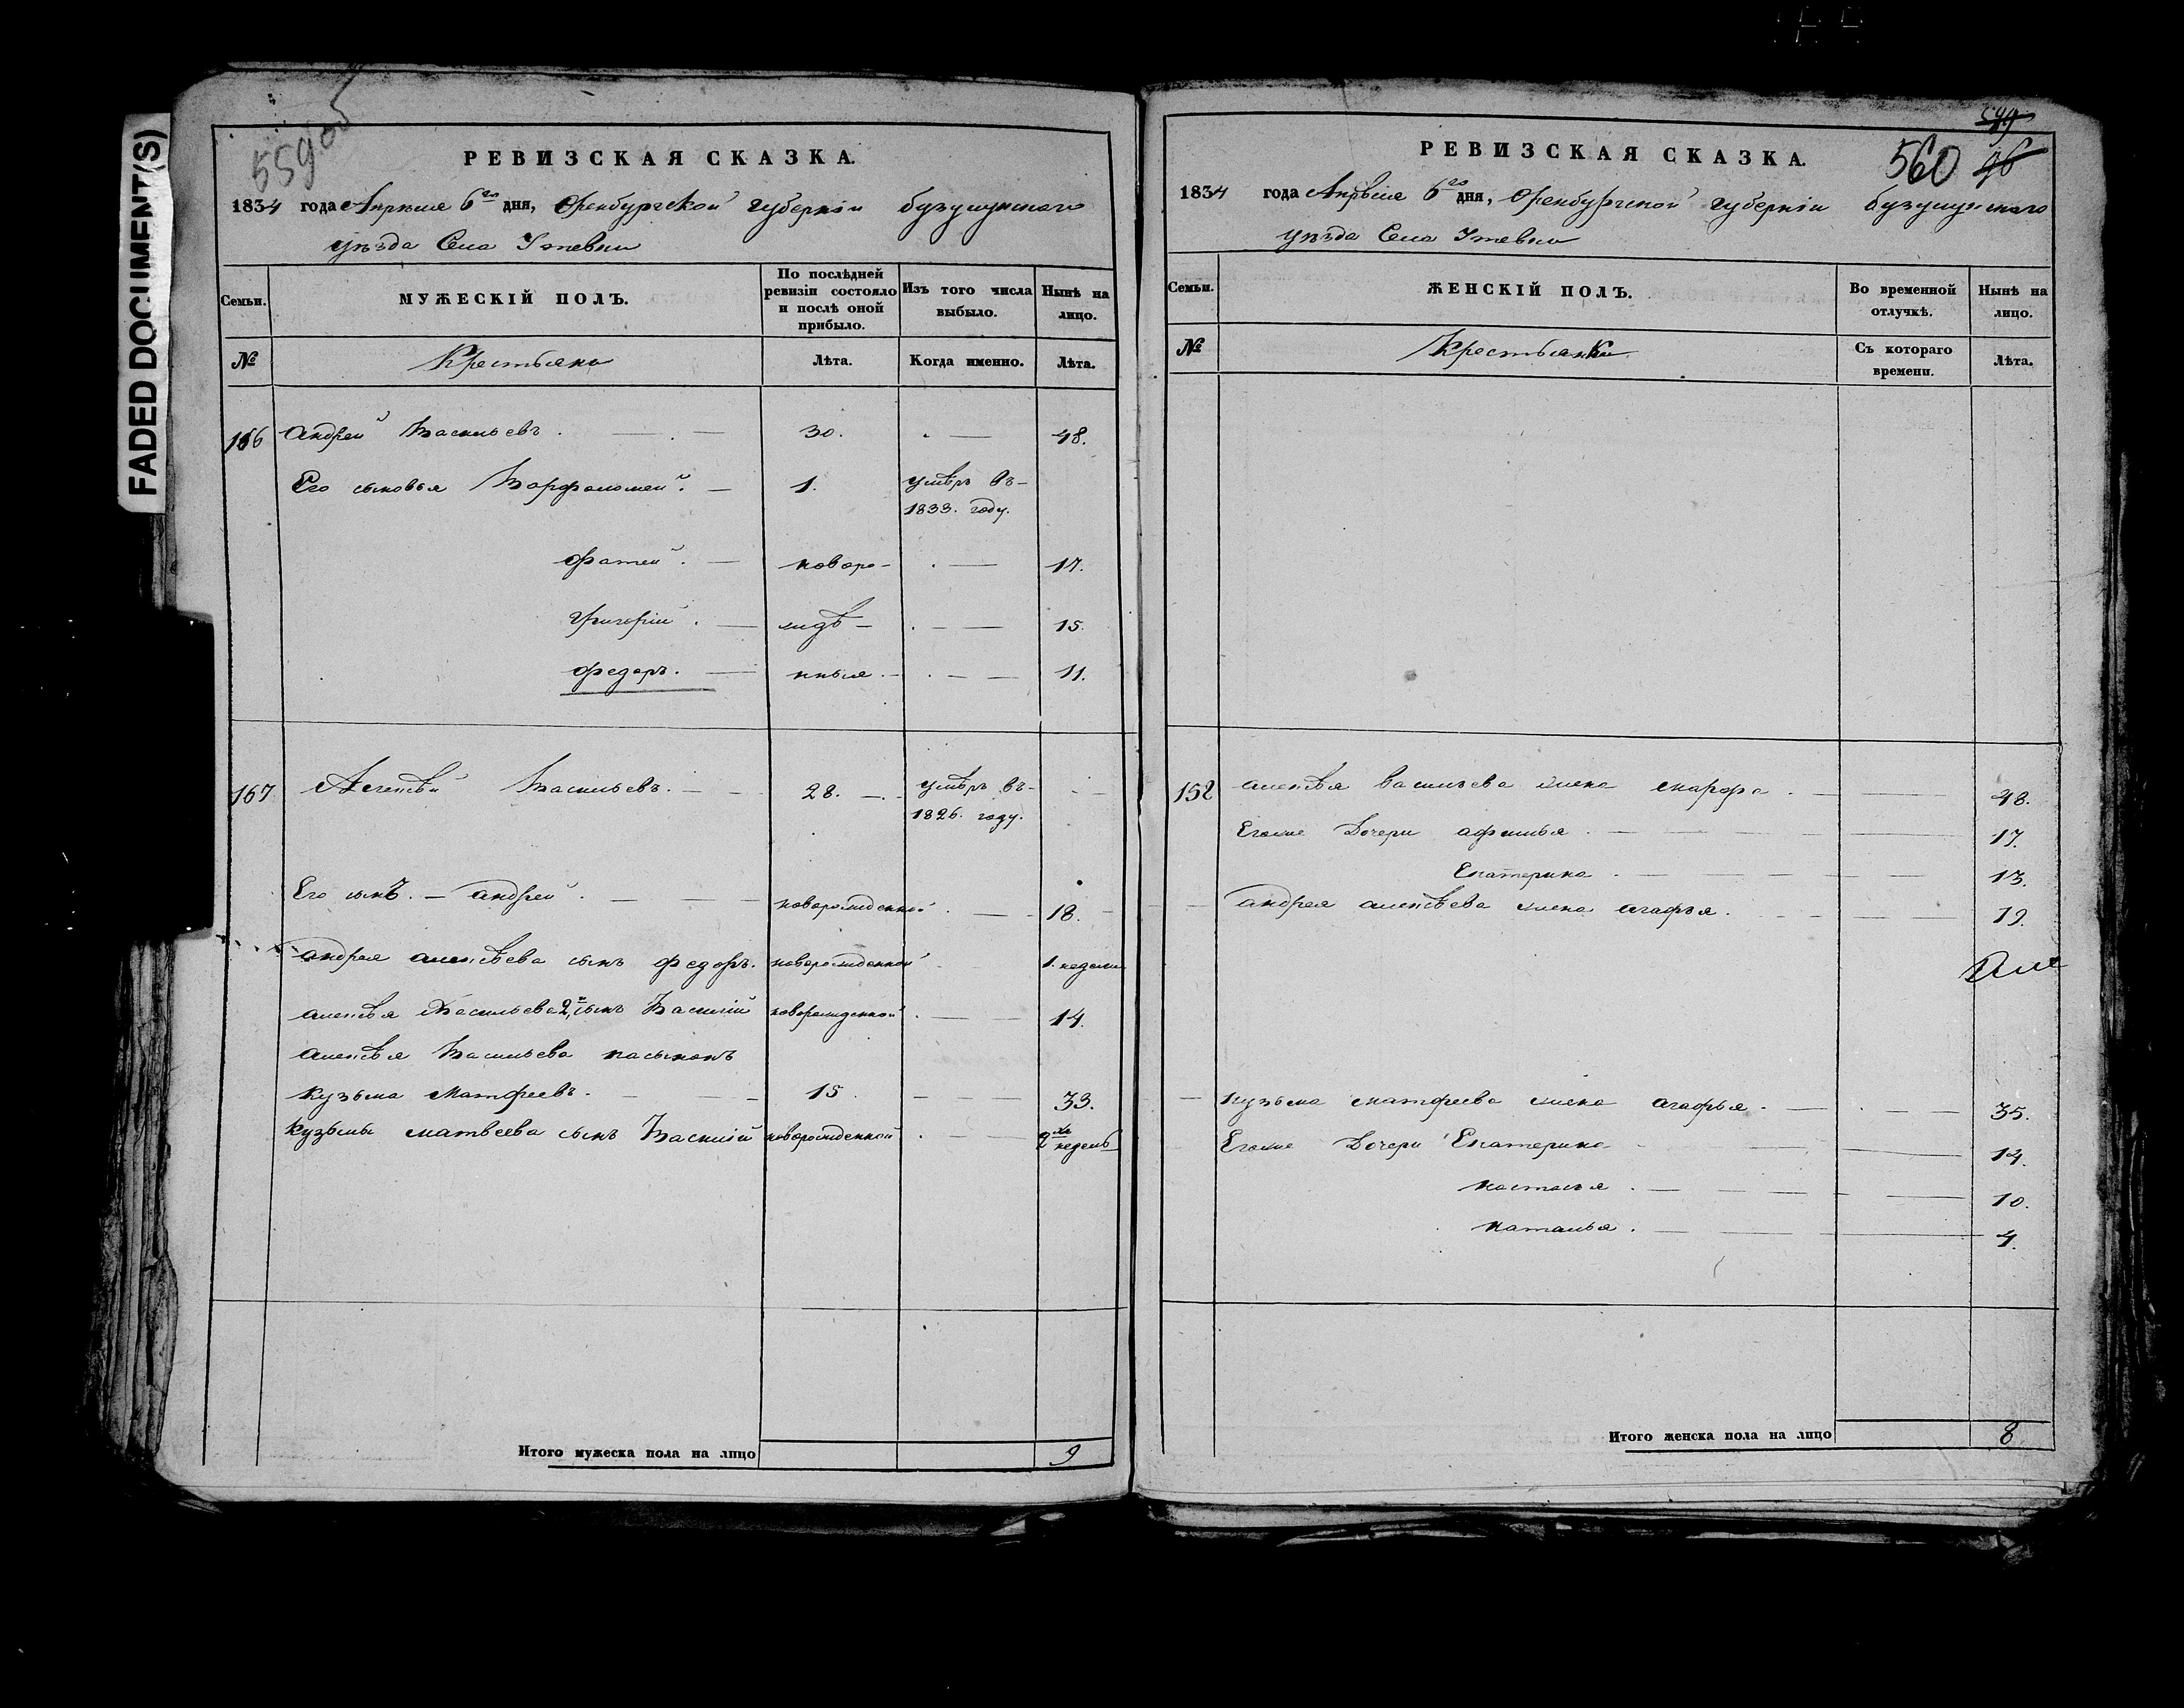 FADED DOCUMENT(S)
559 об
РЕВИЗСКАЯ СКАЗКА.
1834 года Апреля 6го дня, Оренбургской губернии бузулукского
уезда Села Утевки
Семьи.
МУЖЕСКІЙ ПОЛЪ.
По послѣдней ревизіи состояло и послѣ оной прибыло.
Изъ того числа выбыло.
Нынѣ на лицо.
№
Крестьяне
Лѣта.
Когда именно.
Лѣта.
166 Андрей Васильевъ. 30. 48.
Его сыновья Варфоломей. 1. умѣръ въ
1833. году.
Фатей. новоро- 17.
Григорій. жидѣ- 15.
Федоръ. нныя 11.
167 Алексѣй Васильевъ. 28. умѣръ въ
1826. году.
Его сынъ. Андрей. новорожденной. 18.
Андрея алексѣева сынъ Федоръ. новорожденной 1. недели
алексѣя Васильева 2й сынъ Василій новорожденной. 14.
алексѣя Васильева пасынокъ
Кузьма Матфеевъ. 15. 33.
Кузьмы матвеева сынъ Василий новорожденной. 2хъ недель
Итого мужеска пола на лицо 9
549
560 96
РЕВИЗСКАЯ СКАЗКА.
1834 года Апрѣля 6го дня, Оренбургской губерніи бузулукского
уѣзда Села Утевки
Семьи.
ЖЕНСКІЙ ПОЛЪ.
Во временной отлучкѣ.
Нынѣ на лицо.
№
Крестьянки
Съ котораго времени.
Лѣта.
152 алексѣя васильева жена марфа. 48.
Егоже Дочери афимья. 17.
Екатерина. 13.
андрея алексѣева жена агафья. 19.
кузьма матфеева жена агафья. 35.
Егоже Дочери Екатерина 14.
настасья. 10.
наталья. 4.
Итого женска пола на лицо 8